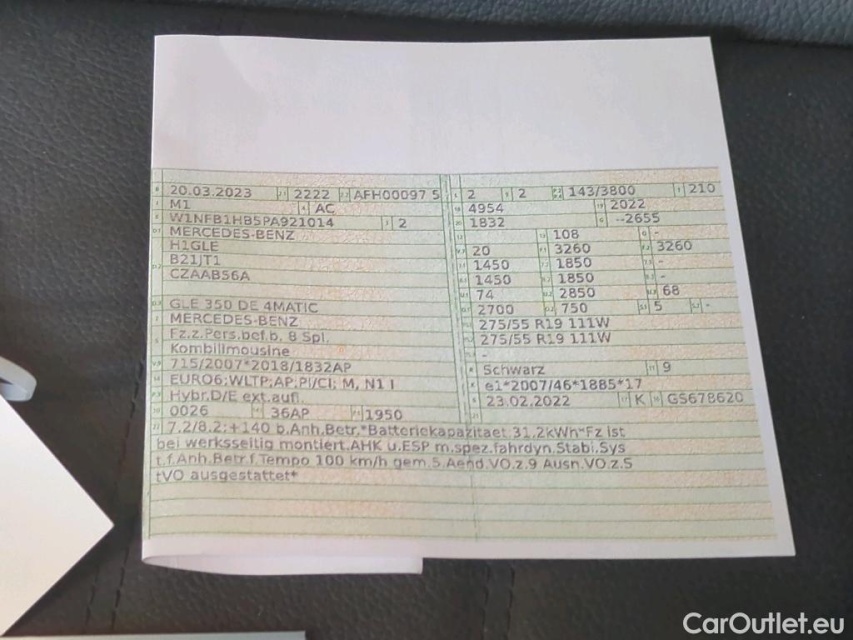 20.03.2023 2222 AFH00097 5 2 2 143/3800 210
M1 AC 4954 2022
W1NFB1HB5PA921014 2 1832 --2655
MERCEDES-BENZ 108 -
H1GLE 20 3260 3260
B21JT1 1450 1850 -
CZAAB56A 1450 1850 -
74 2850 68
GLE 350 DE 4MATIC 2700 750 5 -
MERCEDES-BENZ 275/55 R19 111W
Fz.z.Pers.bef.b. 8 Spl. 275/55 R19 111W
Kombilimousine -
715/2007*2018/1832AP Schwarz 9
EURO6;WLTP;AP,PI/CI; M, N1 I e1*2007/46*1885*17
Hybr.D/E ext.aufl 23.02.2022 K GS678620
0026 36AP 1950
7.2/8.2:+140 b.Anh.Betr.*Batteriekapazitaet 31,2kWh*Fz ist
bei werksseitig montiert.AHK u.ESP m.spez.fahrdyn.Stabi.Sys
t.f.Anh.Betr.f.Tempo 100 km/h gem.5.Aend.VO.z.9 Ausn.VO.z.S
tVO ausgestattet*
CarOutlet.eu